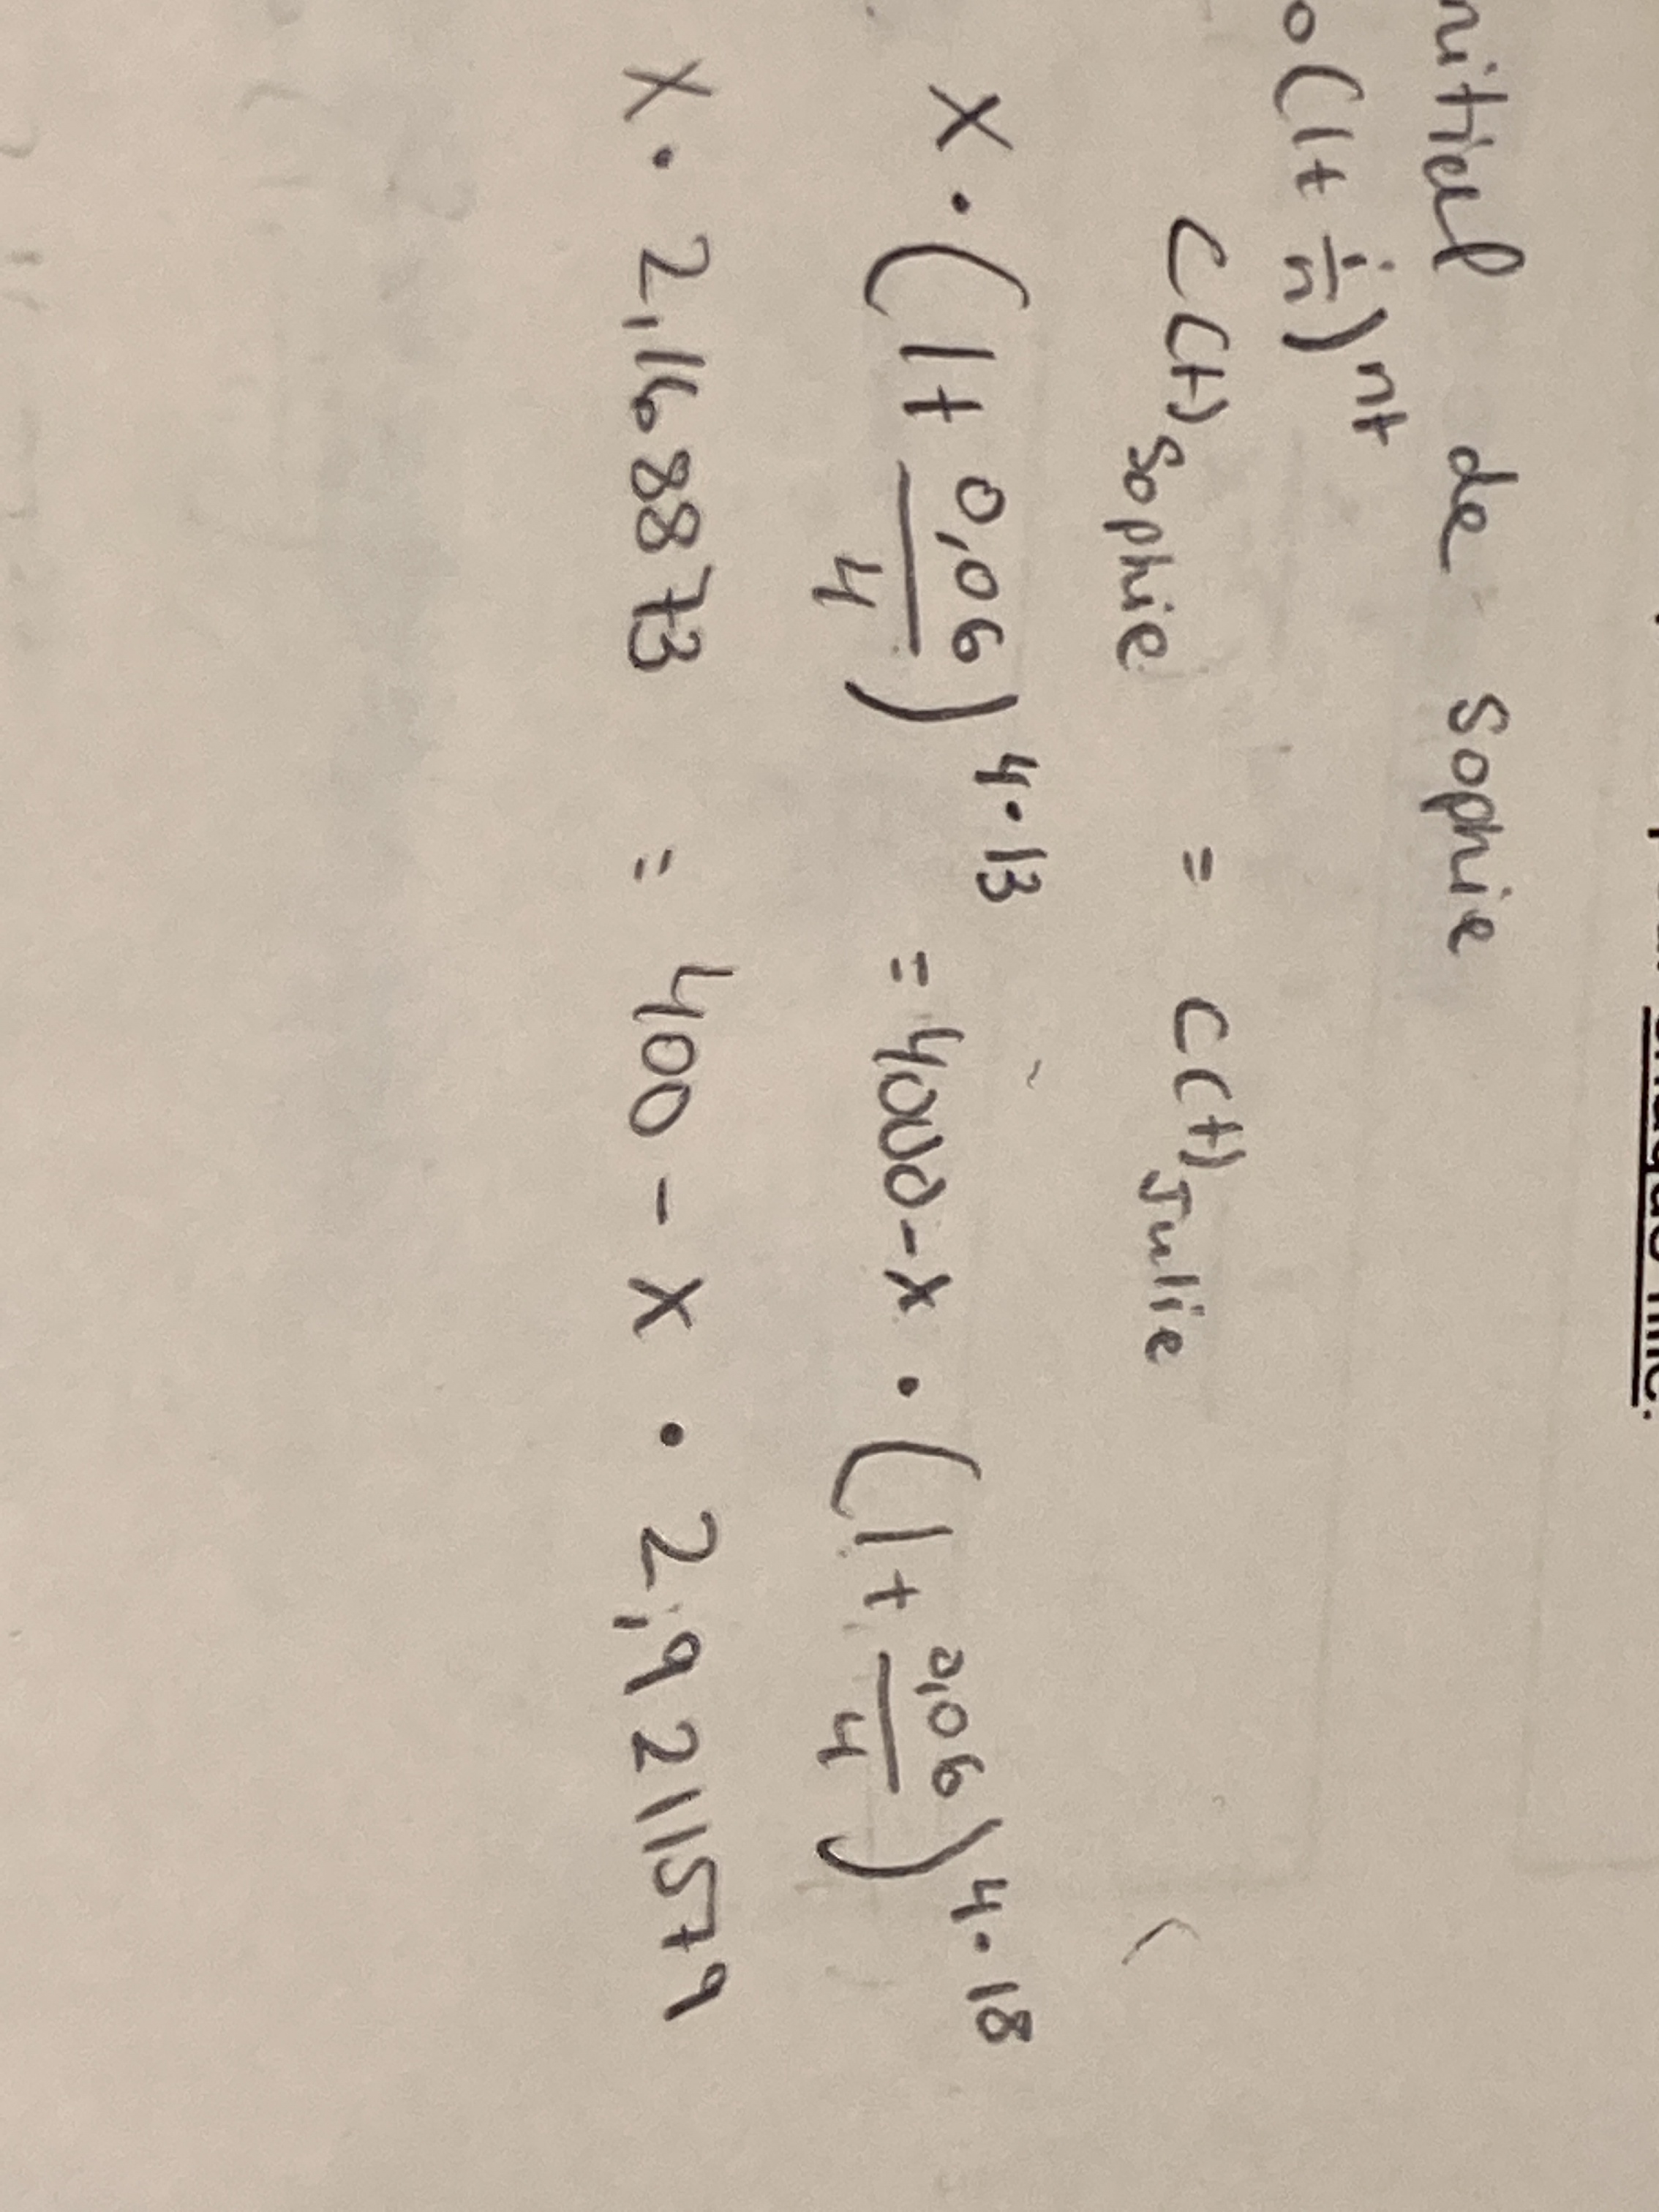 nitial de Sophie
o(1+ i/n)^nt
C(t)Sophie = C(t)Julie
x · (1+ 0,06/4)^4·13 = 4000-x · (1+ 0,06/4)^4·18
x · 2,168873 = 400 - x · 2,9211579